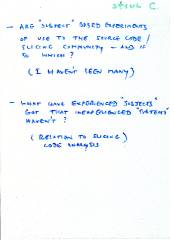 STEVE C.
- ARE "SUBJECT" BASED EXPERIMENTS
OF USE TO THE SOURCE CODE /
SLICING COMMUNITY - AND IF
SO WHICH?
(I HAVEN'T SEEN MANY)
- WHAT HAVE EXPERIENCED "SUBJECTS"
GOT THAT INEXPERIENCED
HAVEN'T?
(RELATION TO SLICING
CODE ANALYSIS